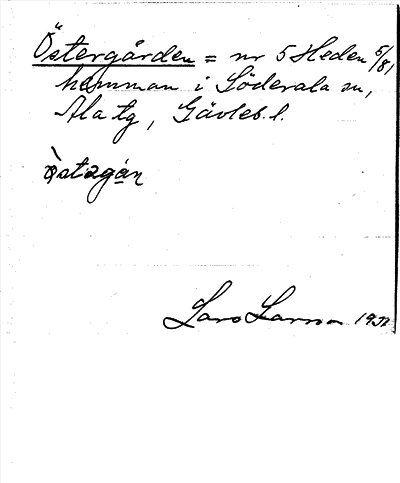 Östergården = nr 5 Heden 5/81
hemman i Söderala sn,
Ala tg, Gävleb. l.
òstagán
Lars Larson 1932